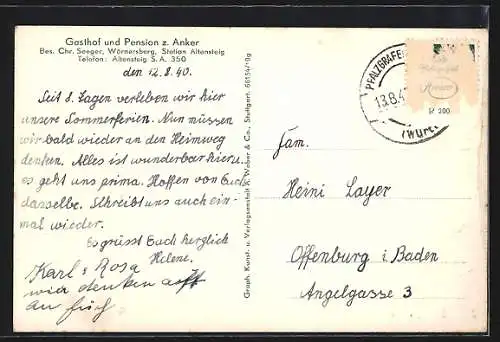 Gasthof und Pension z. Anker
Bes. Chr. Seeger, Wörnersberg, Station Altensteig
Telefon: Altensteig S. A. 350
den 12.8.40.
Seit 8 Tagen verleben wir hier
unsere Sommerferien. Nun müssen
wir bald wieder an den Heimweg
denken. Alles ist wunderbar hier u.
es geht uns prima. Hoffen von Euch
dasselbe. Schreibt uns auch ein-
mal wieder.
Es grüsst Euch herzlich
Helene.
Karl & Rosa
wir denken oft
an Euch
Graph. Kunst- u. Verlagsanstalt K. Weber & Co., Stuttgart.
PFALZGRAFE
13.8.4
(WÜRT
Fam.
Heini Layer
Offenburg i Baden
Angelgasse 3